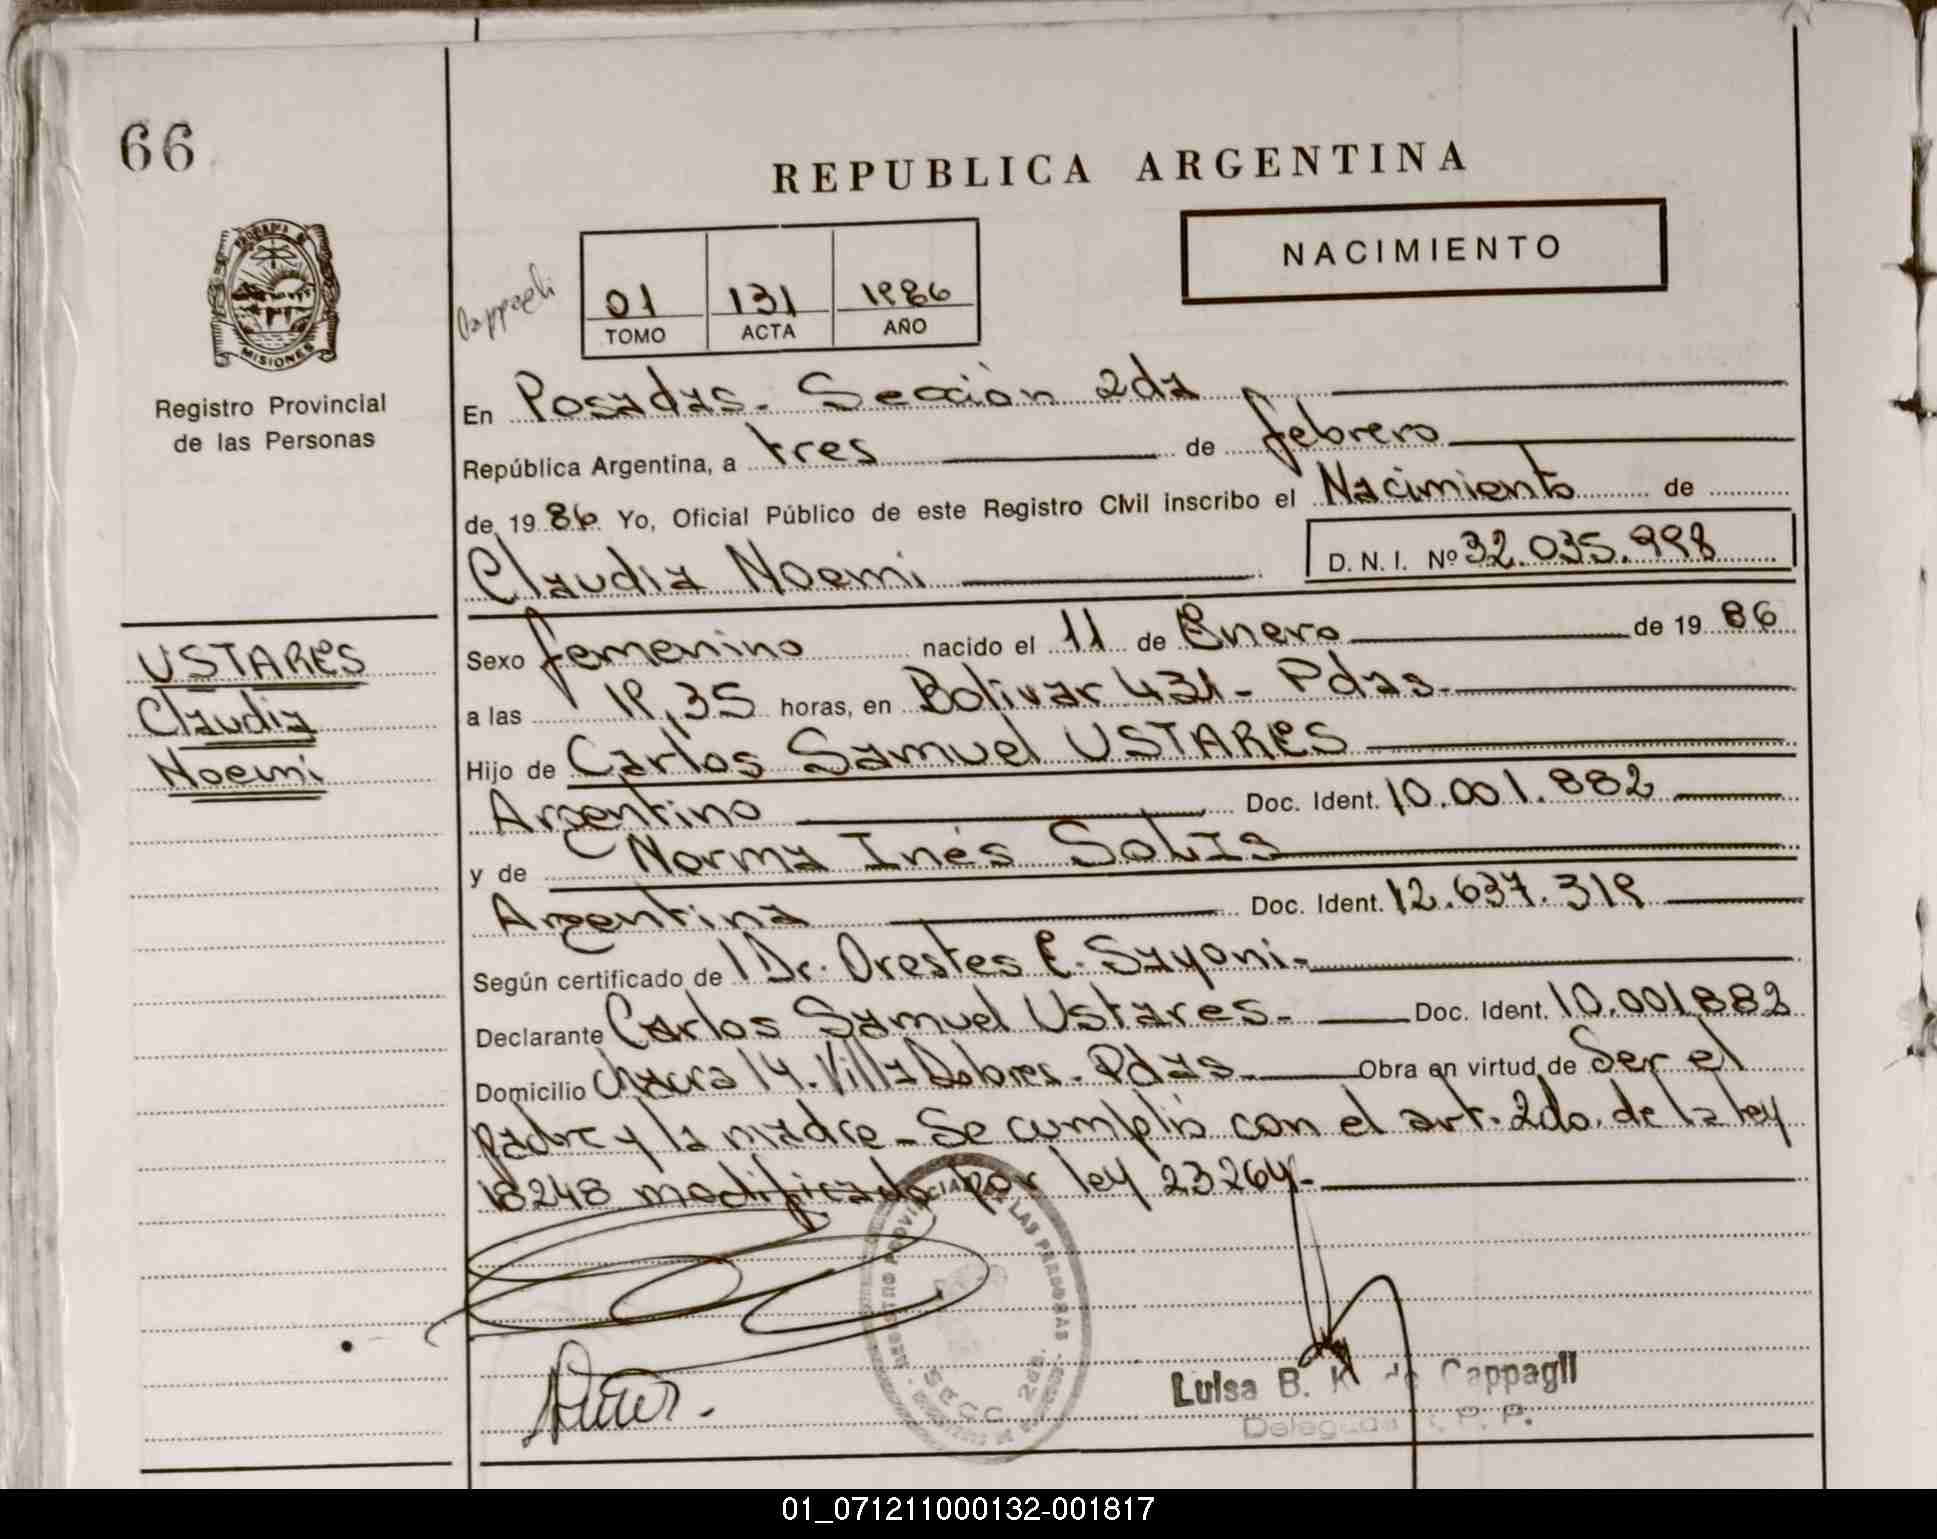 66
REPUBLICA ARGENTINA
NACIMIENTO
PROVINCIA DE
MISIONES
Registro Provincial
de las Personas
Cappagli
01 131 1986
TOMO ACTA AÑO
En Posadas. Sección 2da
República Argentina, a tres de febrero
de 19 86 Yo, Oficial Público de este Registro Civil inscribo el Nacimiento de
Claudia Noemi D. N. I. Nº 32.035.998
USTARES
Claudia
Noemi
Sexo femenino nacido el 11 de Enero de 19 86
a las 19,35 horas, en Bolívar 431 - Pdas.
Hijo de Carlos Samuel USTARES
Argentino Doc. Ident. 10.001.882
y de Norma Inés SOLIS
Argentina Doc. Ident. 12.637.319
Según certificado de Dr. Orestes E. Sayoni.
Declarante Carlos Samuel Ustares. Doc. Ident. 10.001882
Domicilio chacra 14. Villa Dolores. Pdas. Obra en virtud de Ser el
padre y la madre - Se cumplió con el art. 2do. de la ley
18248 modificado por ley 23264.
REGISTRO PROVINCIAL DE LAS PERSONAS
SECC. 2da.
Luisa B. K. de Cappagli
Delegada R. P. P.
01_071211000132-001817